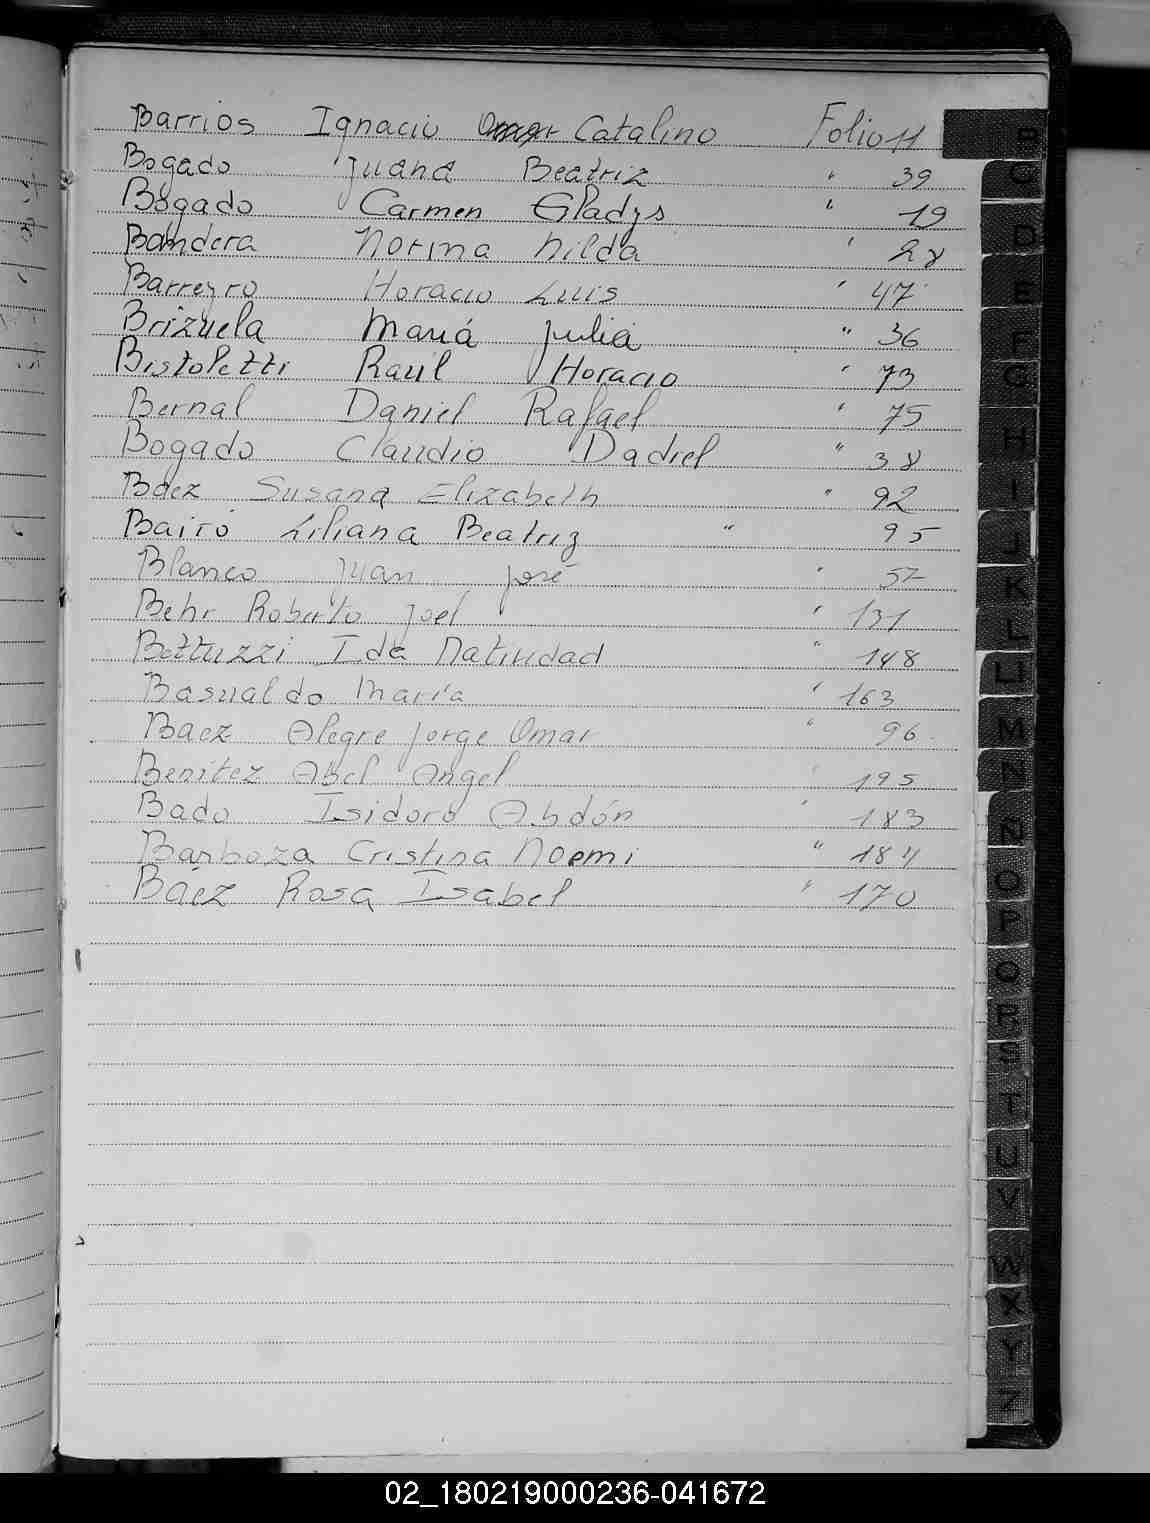 Barrios Ignacio Catalino Folio 11
Bogado Juana Beatriz " 39
Bogado Carmen Gladys " 19
Bandera Norma Nilda " 28
Barreyro Horacio Luis " 47
Brizuela María Julia " 36
Bistoletti Raúl Horacio " 73
Bernal Daniel Rafael " 75
Bogado Claudio Dadiel " 38
Báez Susana Elizabeth " 92
Bairo Liliana Beatriz " 95
Blanco Juan José " 57
Behr Roberto Joel " 131
Bottuzzi Ida Natividad " 148
Basualdo María " 163
Baez Alegre Jorge Omar " 96
Benitez Abel Angel " 195
Bado Isidoro Abdón " 183
Barboza Cristina Noemi " 184
Báez Rosa Isabel " 170
B
C
D
E
F
G
H
I
J
K
L
LL
M
N
Ñ
O
P
Q
R
S
T
U
V
W
X
Y
Z
02_180219000236-041672